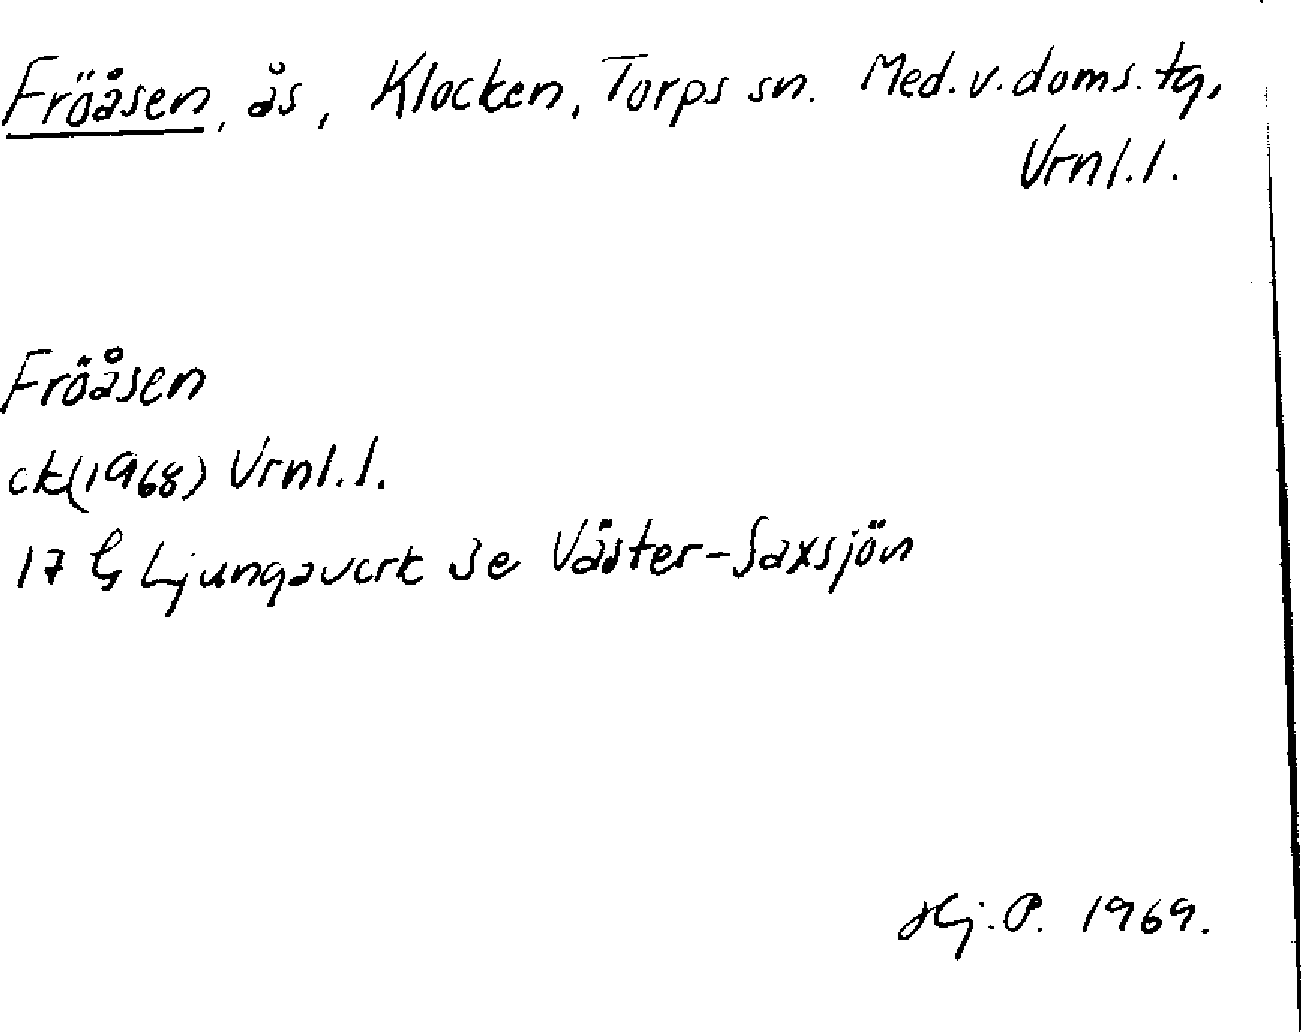 Fröåsen, ås, Klocken, Torps sn. Med.v.doms.tg,
Vrnl.l.
Fröåsen
ck(1968) Vrnl.l.
17 G Ljungaverk Se Väster-Saxsjön
Hj.P. 1969.